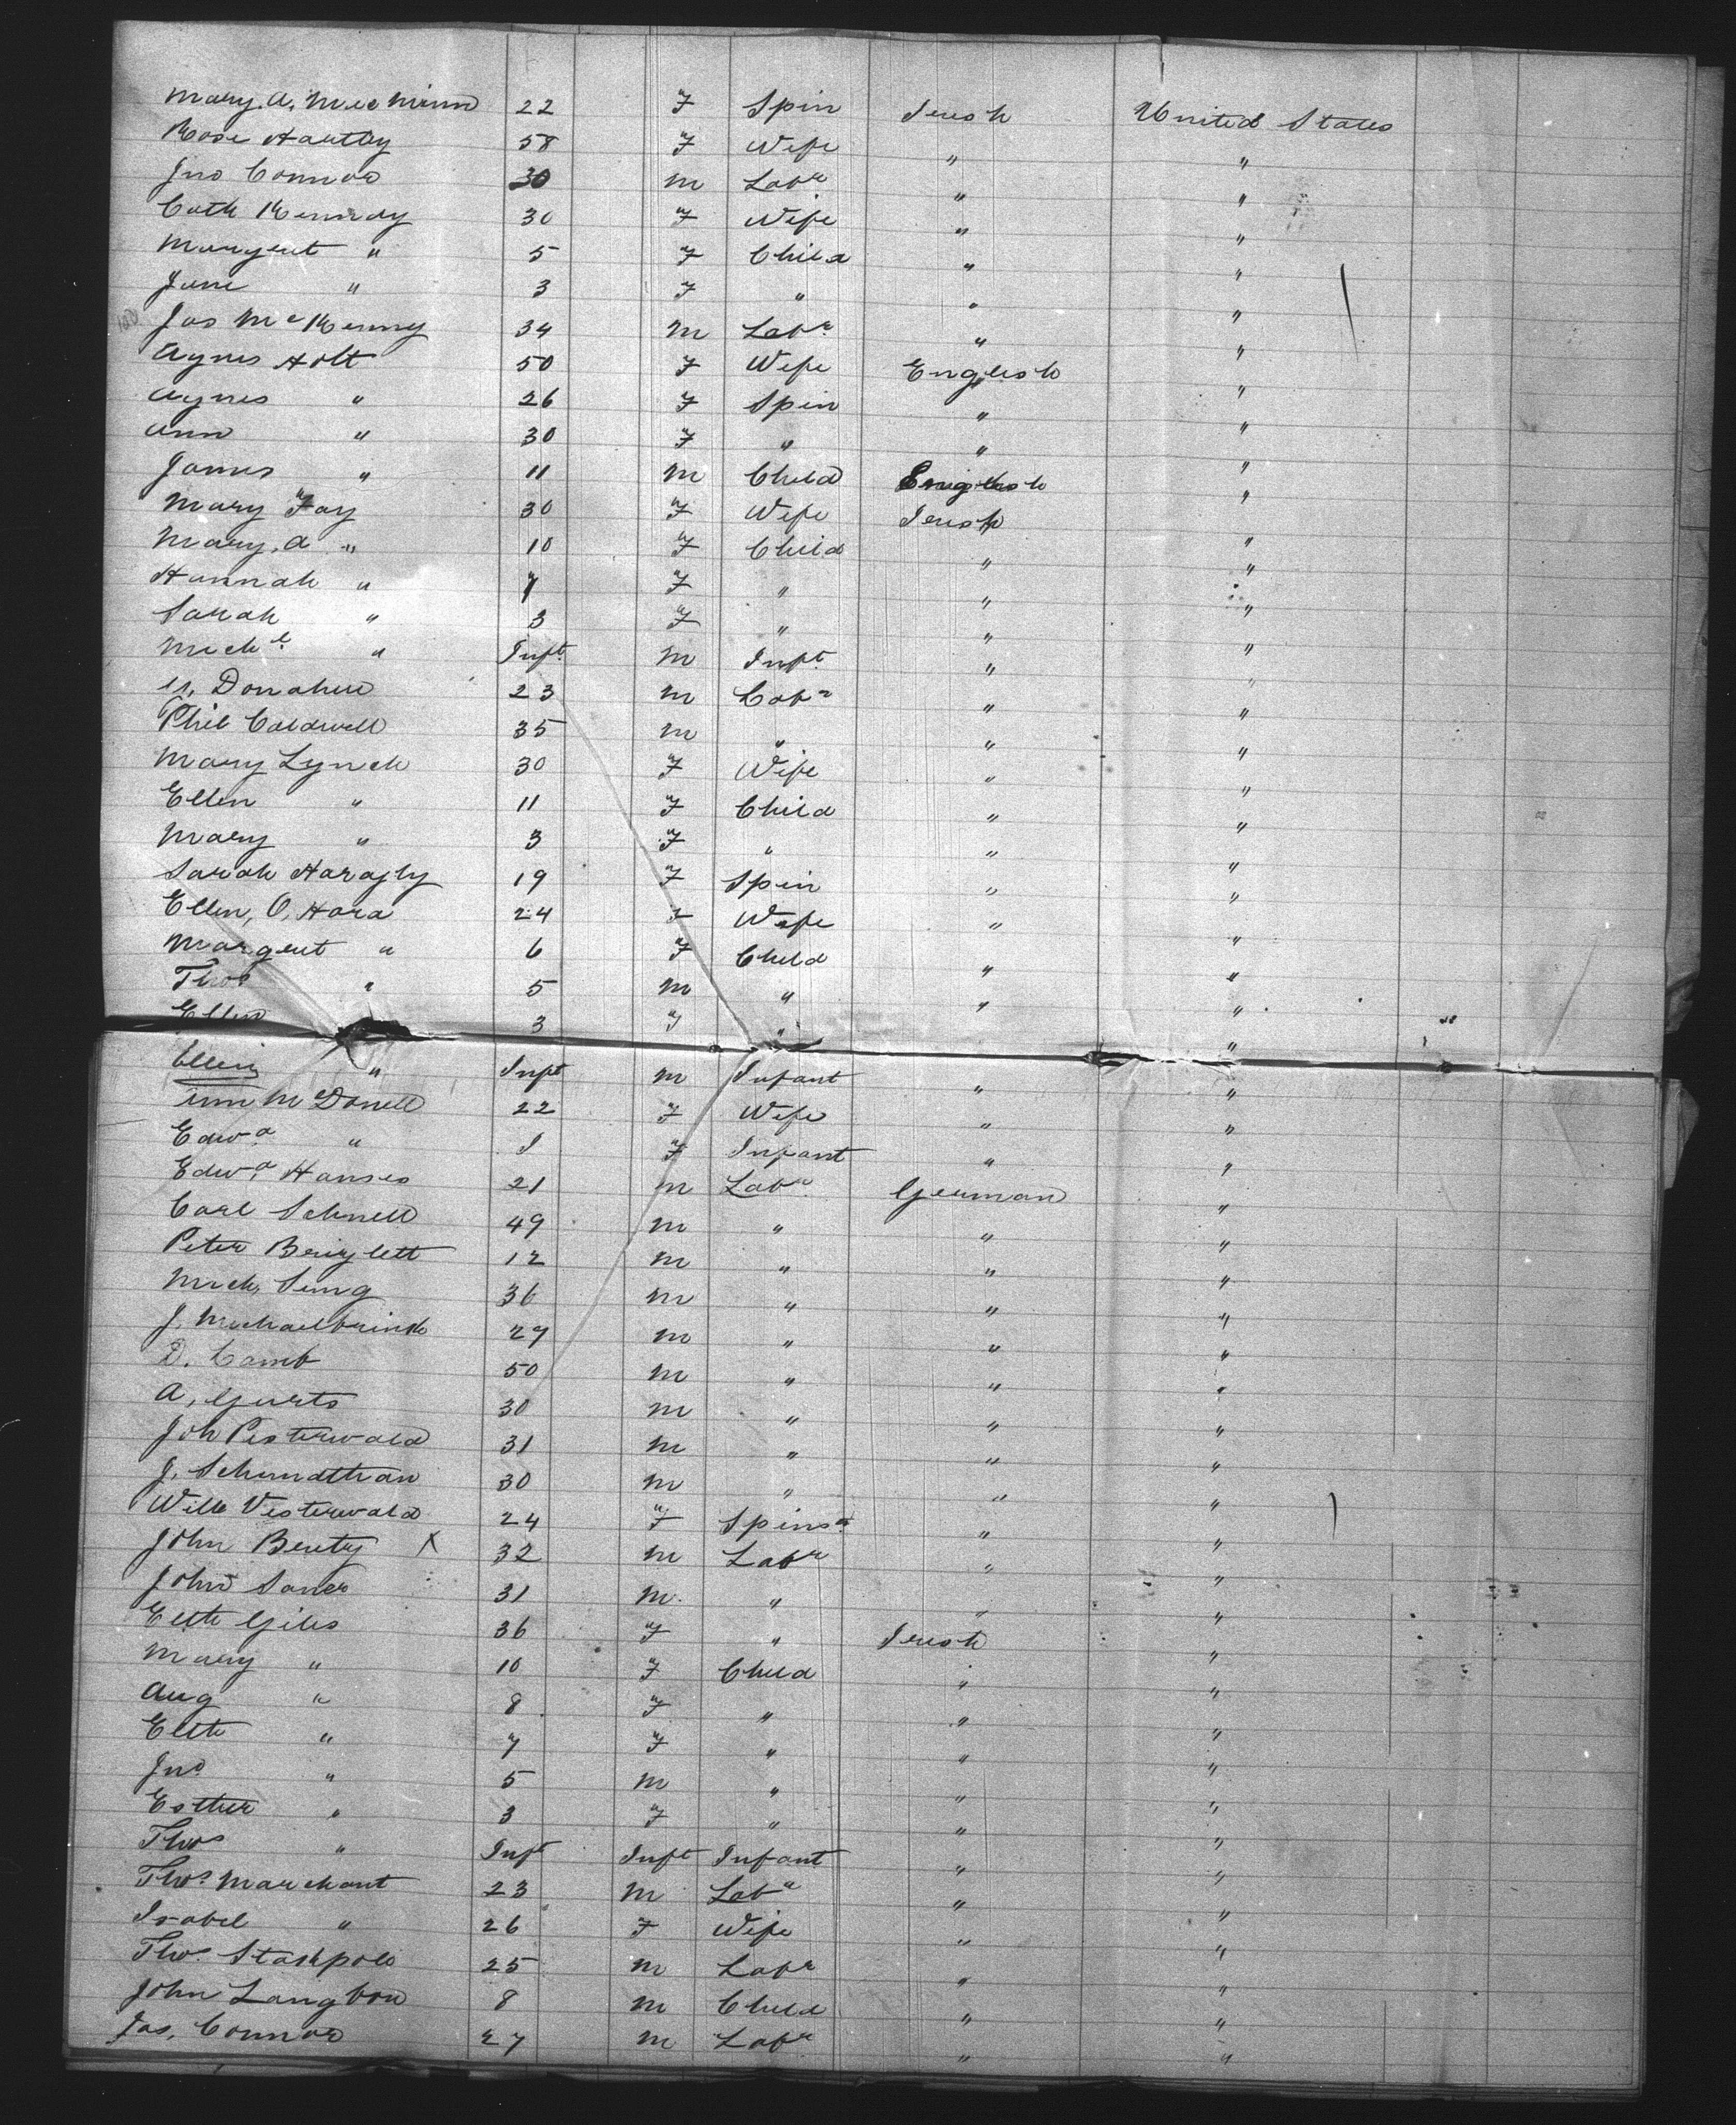 Mary. A. 22 F Spin Irish United States
Rose Hartley 58 F Wife " "
Jno Connor 30 m Labr " "
Cath Kennedy 30 F Wife " "
Margeret " 5 F Child " "
Jane " 3 F " " "
Jas McKenny 34 m Labr " "
Agnes Holt 50 F Wife English "
Agnes " 26 F Spin " "
Ann " 30 F " " "
James " 11 m Child English "
Mary Fay 30 F Wife Irish "
Mary. A " 10 F Child " "
Hannah " 7 F " " "
Sarah " 3 F " " "
Michl " Inft. m Inft. " "
Donahue 23 m Labr " "
Phil Caldwell 35 m " " "
Mary Lynch 30 F Wife " "
Ellen " 11 F Child " "
Mary " 3 F " " "
Sarah Haraghy 19 F Spin " "
Ellen, O, Hara 24 F Wife " "
Margeret " 6 F Child " "
Thos " 5 m " " "
Ellen 3 F " "
" Inft m Infant " "
Ann McDonell 22 F Wife " "
Edwd " 1 F Infant " "
Edwd Hanses 21 m Labr German "
Carl Schnell 49 m " " "
Peter 12 m " " "
Mich, 36 m " " "
J. Michaelbrink 29 m " " "
D. Camb 50 m " " "
A, Gurts 30 m " " "
Joh Pesterwald 31 m " " "
J. 30 m " " "
Will Vesterwald 24 F Spinsr " "
John Benty X 32 m Labr " "
John Saner 31 m. " " "
Elth Giles 36 F " Irish "
Mary " 10 F Child " "
Aug " 8 F " " "
Elth " 7 F " " "
Jno " 5 m " " "
Esther " 3 F " " "
Thos " Inft Inft Infant " "
Thos Marchant 23 m Labr " "
Isabel " 26 F Wife " "
Thos Stackpole 25 m Labr " "
John Langdon 8 m Child " "
Jas, Connor 27 m Labr " "